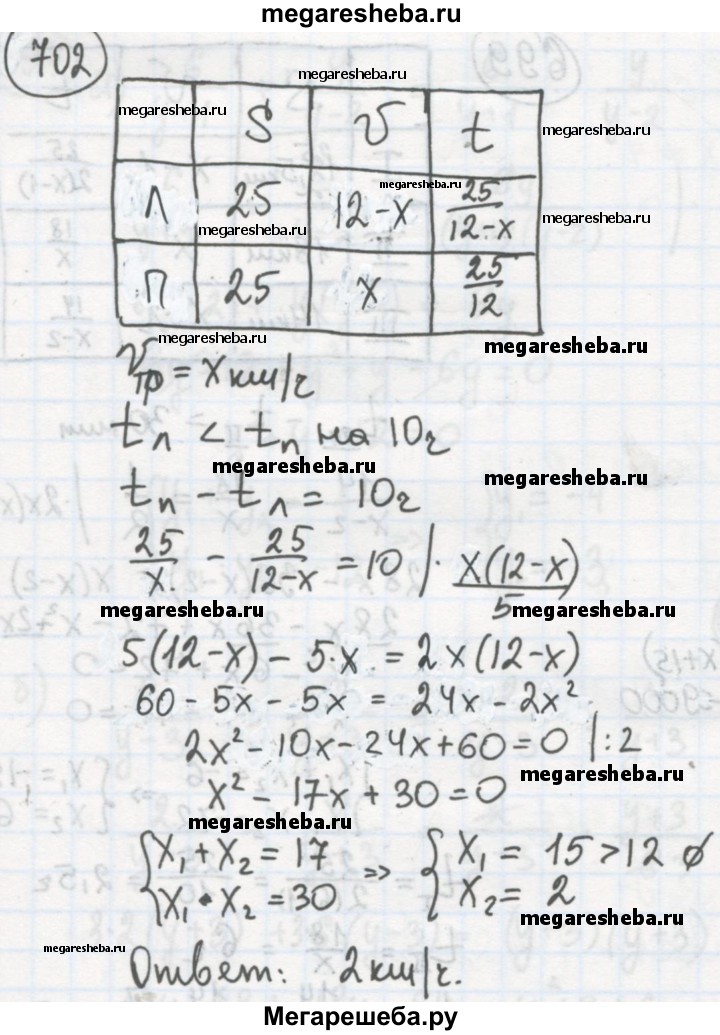 megaresheba.ru
702
megaresheba.ru
megaresheba.ru
S v t
megaresheba.ru
megaresheba.ru
Л 25 12-x 25/(12-x)
megaresheba.ru
megaresheba.ru
П 25 x 25/12
megaresheba.ru
megaresheba.ru
Vтр = x км/ч
tл < tп на 10ч
megaresheba.ru
megaresheba.ru
tп - tл = 10ч
25/x - 25/(12-x) = 10 |· x(12-x)/5
megaresheba.ru
megaresheba.ru
5(12-x) - 5·x = 2x(12-x)
60 - 5x - 5x = 24x - 2x²
2x² - 10x - 24x + 60 = 0 |:2
megaresheba.ru
x² - 17x + 30 = 0
megaresheba.ru
{x₁ + x₂ = 17 => {x₁ = 15 > 12 ∅
{x₁ · x₂ = 30 {x₂ = 2
megaresheba.ru
megaresheba.ru
Ответ: 2 км/ч.
Мегарешеба.ру